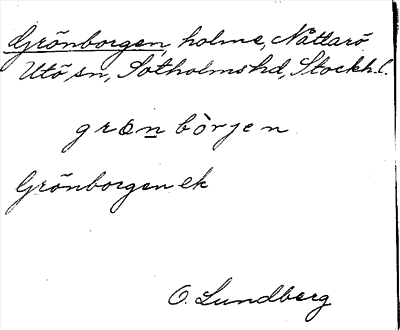 Grönborgen, holme, Nåttarö
Utö sn, Sotholms hd, Stockh. l.
grön bòrjen
Grönborgen ek
O. Lundberg